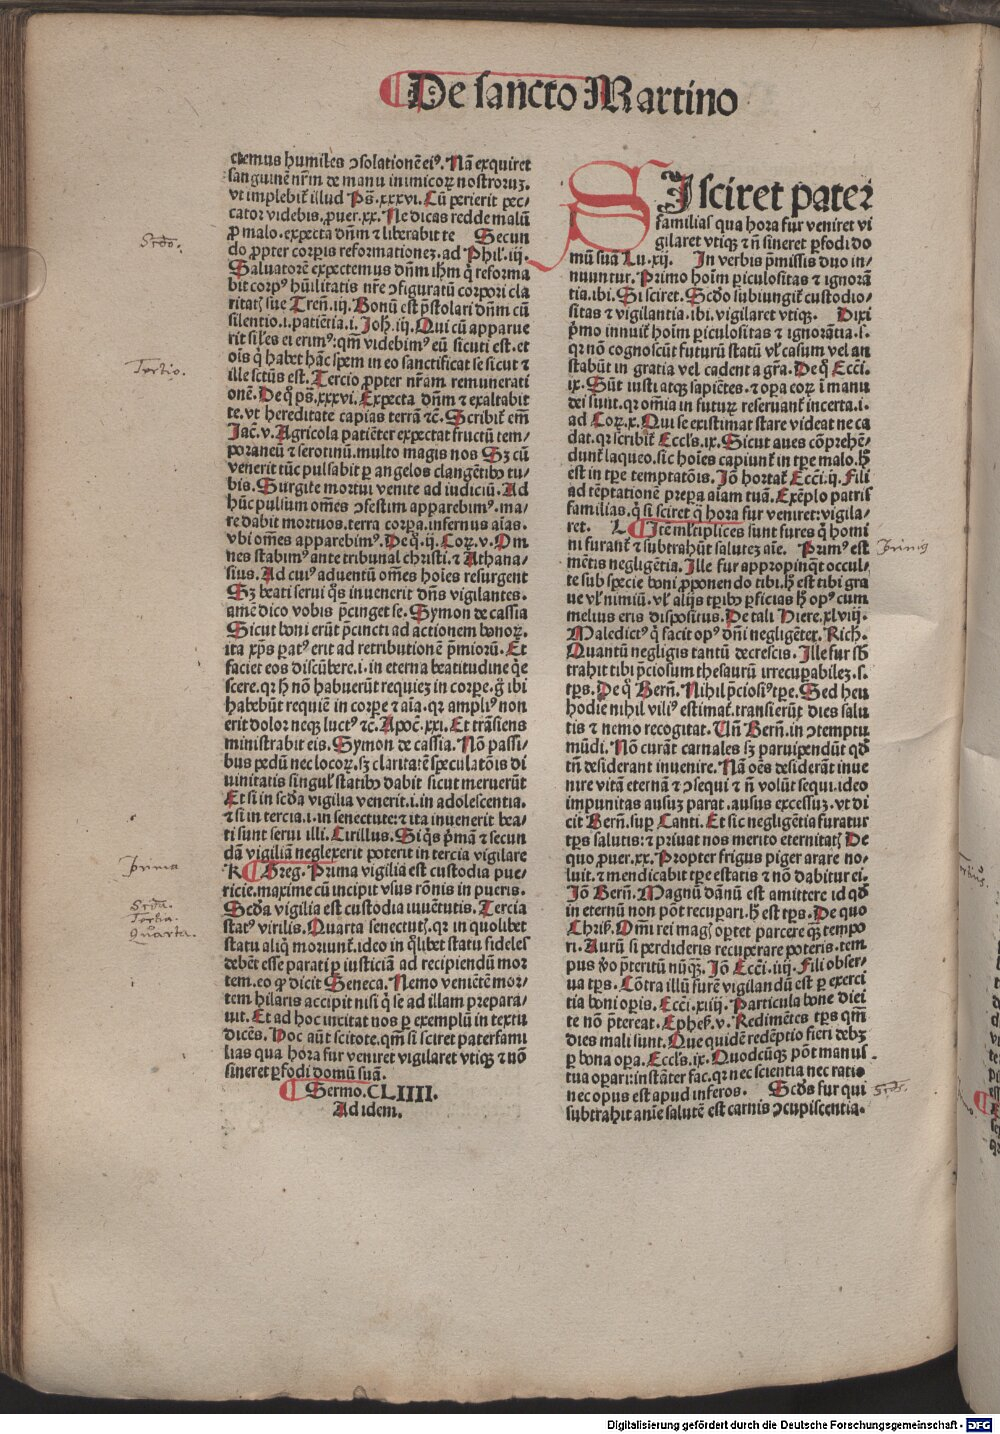 De sancto Martino
ctemus humiles ↄsolationē eiꝰ. Nā exquiret
sanguinē nr̄m de manu inimicoꝝ nostroruꝫ.
vt implebit᷑ illud Ps̄. xxxvi. Cū perierit pec⸗
cator videbis. ꝓuer. xx. Ne dicas redde malū
ꝓ malo. expecta dn̄m ⁊ liberabit te Secun
do ꝓpter corꝑis reformationeꝫ. ad Phil. iij.
Saluatorē expectemus dn̄m ihm̄ q̇ reforma
bit corpꝰ hūilitatis nr̄e ↄfiguratū corpori cla
ritatꝭ sue Tren̄. iij. Bonū est p̄stolari dn̄m cū
silentio. i. patiētia. i. Joh̄. iij. Qui cū apparue
rit siles ei erimꝰ: qm̄ videbimꝰ eū sicuti est. et
oīs q̇ habet hāc spem in eo sanctificat se sicut ⁊
ille sctūs est. Tercio ꝓpter nr̄am remunerati
onē. De qͦ ps̄. xxxvi. Expecta dn̄m ⁊ exaltabit
te. vt hereditate capias terrā ⁊c̄. Scribit᷑ em̄
Jac̄. v. Agricola patiēter expectat fructū tem⸗
poraneū ⁊ serotinū. multo magis nos Sꝫ cū
venerit tūc pulsabit ꝑ angelos clangētibꝰ tu⸗
bis. Surgite mortui venite ad iudiciū. Ad
hūc pulsum om̄es ↄfestim apparebimꝰ. ma⸗
re dabit mortuos. terra corꝑa. infernus aīas.
vbi om̄es apparebimꝰ. De qͦ. ij. Coꝝ. v. Om
nes stabimꝰ ante tribunal christi. ⁊ Athana⸗
sius. Ad cuiꝰ aduentū om̄es hoīes resurgent
Sꝫ beati serui qͦs inuenerit dn̄s vigilantes.
amē dico vobis p̄cinget se. Symon de cassia
Sicut boni erūt p̄cincti ad actionem bonoꝝ.
ita xp̄s ꝑatꝰ erit ad retributionē p̄mioꝝ. Et
faciet eos discūbere. i. in eterna beatitudine q̇e
scere. qꝛ hͥ nō habuerūt requieꝫ in corꝑe. g̊ ibi
habebūt requiē in corꝑe ⁊ aīa. qꝛ ampliꝰ non
erit dolor neqꝫ luctꝰ ⁊c̄. Apoc̄. xxi. Et trāsiens
ministrabit eis. Symon de cassia. Nō passi⸗
bus pedū nec locoꝝ. sꝫ claritatē speculatōis di
uinitatis singulꝭ statibꝰ dabit sicut meruerūt
Et si in scd̄a vigilia venerit. i. in adolescentia.
⁊ si in tercia. i. in senectute: ⁊ ita inuenerit bea⸗
ti sunt serui illi. Cirillus. Si q̇s p̄mā ⁊ secun
dā vigiliā neglexerit poterit in tercia vigilare
K Greg. Prima vigilia est custodia pue⸗
ricie. maxime cū incipit vsus rōnis in pueris.
Scd̄a vigilia est custodia iuuētutis. Tercia
statꝰ virilis. Quarta senectutꝭ. qꝛ in quolibet
statu aliq̇ moriunt᷑. ideo in qͦlibet statu fideles
debēt esse parati ꝑ iusticiā ad recipiendū mor
tem. eo ꝙ dicit Seneca. Nemo veniētē mor⸗
tem hilaris accipit nisi q̇ se ad illam prepara⸗
uit. Et ad hoc incitat nos ꝑ exemplū in textu
dicēs. Hoc aūt scitote. qm̄ si sciret paterfami
lias qua hora fur veniret vigilaret vtiqꝫ ⁊ nō
sineret ꝑfodi domū suā.
Sermo. CLIIII.
Ad idem.
SI sciret pater
familiaſ qua hora fur veniret vi
gilaret vtiqꝫ ⁊ nō sineret ꝑfodi do
mū suā Lu. xij. In verbis p̄missis duo in⸗
nuuntur. Primo hoīm ꝑiculositas ⁊ ignorā
tia. ibi. Si sciret. Scd̄o subiungit᷑ custodio⸗
sitas ⁊ vigilantia. ibi. vigilaret vtiqꝫ. Dixi
p̄mo innuit᷑ hoīm ꝑiculositas ⁊ ignorātia. s.
qꝛ nō cognoscūt futurū statū vl̓ casum vel an
stabūt in gratia vel cadent a gr̄a. De qͦ Ecc̄i.
ix. Sūt iusti atqꝫ sapiētes. ⁊ oꝑa eoꝝ ī manu
dei sunt. qꝛ om̄ia in futuꝝ reseruant᷑ incerta. i.
ad Coꝝ. x. Qui se existimat stare videat ne ca
dat. qꝛ scribit᷑ Eccl̄s. ix. Sicut aues cōprehē⸗
dunt᷑ laqueo. sic hoīes capiunt᷑ in tp̄e malo. hͦ
est in tp̄e temptatōis. Jō hortat᷑ Ecc̄i. ij. Fili
ad tēptationē prepa aīam tuā. Exēplo patris
familias. q̇ si sciret q̇ hora fur veniret: vigila⸗
ret. L Item multiplices sunt fures q̇ homi
ni furant᷑ ⁊ subtrahūt saluteꝫ aīe. Primꝰ est
mētis negligētia. Ille fur appropinq̇t occul⸗
te sub specie boni ꝓponendo tibi. hͦ est tibi gra
ue vl̓ nimiū. vl̓ alijs tꝑibꝰ ꝑficias hͦ opꝰ cum
melius eris dispositus. De tali Hiere. xlviij.
Maledictꝰ q̇ facit opꝰ dn̄i negligēter. Rich̄.
Quantū negligis tantū decrescis. Ille fur sb̄
trahit tibi p̄ciosum thesaurū irrecuꝑabileꝫ. s.
tp̄s. De qͦ Bern̄. Nihil p̄ciosiꝰ tp̄e. Sed heu
hodie nihil viliꝰ estimat᷑. transierūt dies salu
tis ⁊ nemo recogitat. Vn̄ Bern̄. in ↄtemptu
mūdi. Nō curāt carnales sꝫ paruipendūt qd̄
tn̄ desiderant inuenire. Nā oēs desiderāt inue
nire vitā eternā ⁊ ↄsequi ⁊ n̄ volūt sequi. ideo
impunitas ausuꝫ parat. ausus excessuꝫ. vt di
cit Bern̄. suꝑ Canti. Et sic negligētia furatur
tp̄s salutis: ⁊ priuat nos merito eternitatꝭ De
quo ꝓuer. xx. Propter frigus piger arare no⸗
luit. ⁊ mendicabit tp̄e estatis ⁊ nō dabitur ei.
Jō Bern̄. Magnū dānū est amittere id qd̄
in eternū non pōt recuꝑari. hͦ est tp̄s. De quo
Chris̄. Om̄i rei magꝭ oꝑtet parcere qꝫ tempo
ri. Aurū si perdideris recuperare poteris. tem
pus ꝟo p̄teritū nūqꝫ. Jō Ecc̄i. iiij. Fili obser⸗
ua tp̄s. Cōtra illū furē vigilandū est ꝑ exerci
tia boni oꝑis. Ecc̄i. xiiij. Particula bone diei
te nō p̄tereat. Ephes̄. v. Redimētes tp̄s qm̄
dies mali sunt. Que quidē redēptio fieri debꝫ
ꝑ bona oꝑa. Eccl̄s. ix. Quodcūqꝫ pōt manus
tua oꝑari: instāter fac. qꝛ nec scientia nec ratio
nec opus est apud inferos. Scd̄s fur qui
subtrahit anīe salutē est carnis ↄcupiscentia.
Scd̄o.
Tertio.
Prima
Scd̄a.
Tertia.
Quarta.
Primꝰ
Scd̄s.
Digitalisierung gefördert durch die Deutsche Forschungsgemeinschaft - DFG